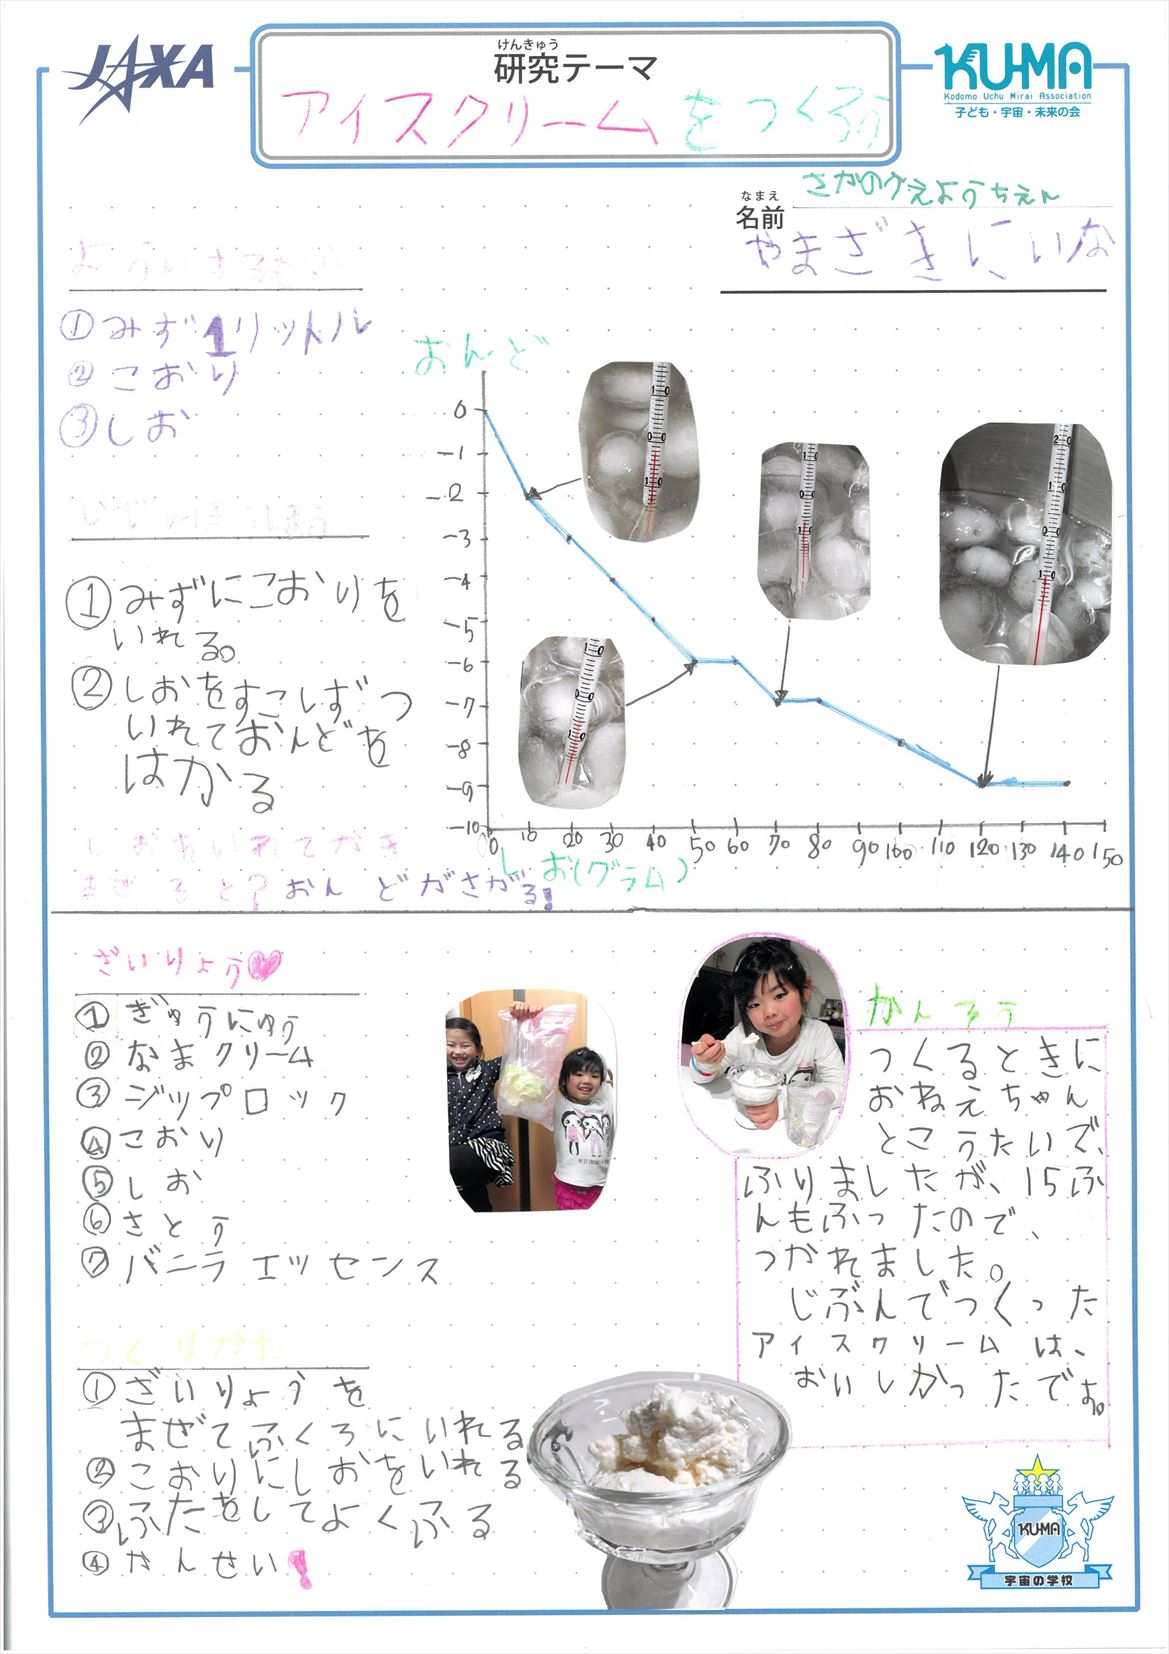 JAXA
けんきゅう
研究テーマ
アイスクリームをつくろう
KU-MA
Kodomo Uchu Mirai Association
子ども・宇宙・未来の会
さがのがえようちえん
なまえ
名前
やまざきにいな
よういするもの
①みず1リットル
②こおり
③しお
じっけんほうほう
①みずにこおりを
いれる。
②しおをすこしずつ
いれておんどを
はかる
しおをいれてかき
まぜると?おんどがさがる!
おんど
0
-1
-2
-3
-4
-5
-6
-7
-8
-9
-10
0 10 20 30 40 50 60 70 80 90 100 110 120 130 140 150
しお(グラム)
ざいりょう
①ぎゅうにゅう
②なまクリーム
③ジップロック
④こおり
⑤しお
⑥さとう
⑦バニラエッセンス
つくりかた
①ざいりょうを
まぜてふくろにいれる
②こおりにしおをいれる
③ふたをしてよくふる
④かんせい!
かんそう
つくるときに
おねえちゃん
とこうたいで、
ふりましたが、15ふ
んもふったので、
つかれました。
じぶんでつくった
アイスクリームは、
おいしかったです。
KU-MA
宇宙の学校